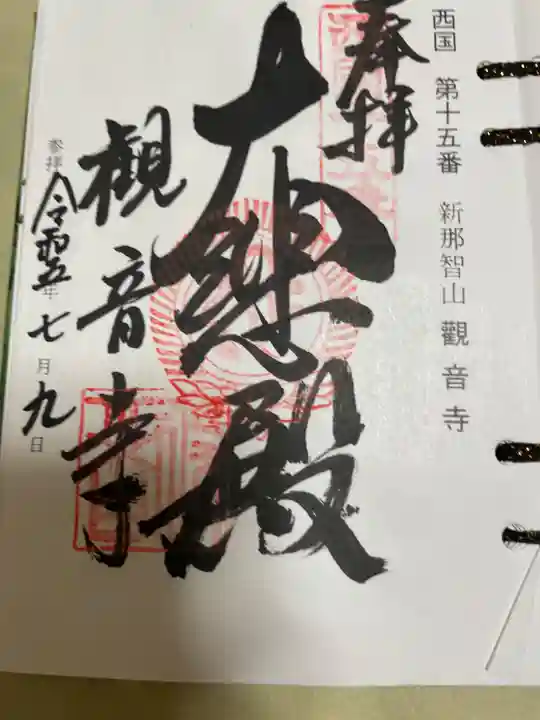 西国 第十五番 新那智山 觀音寺
奉拝
大悲殿
觀音寺
参拝 令和五年七月九日